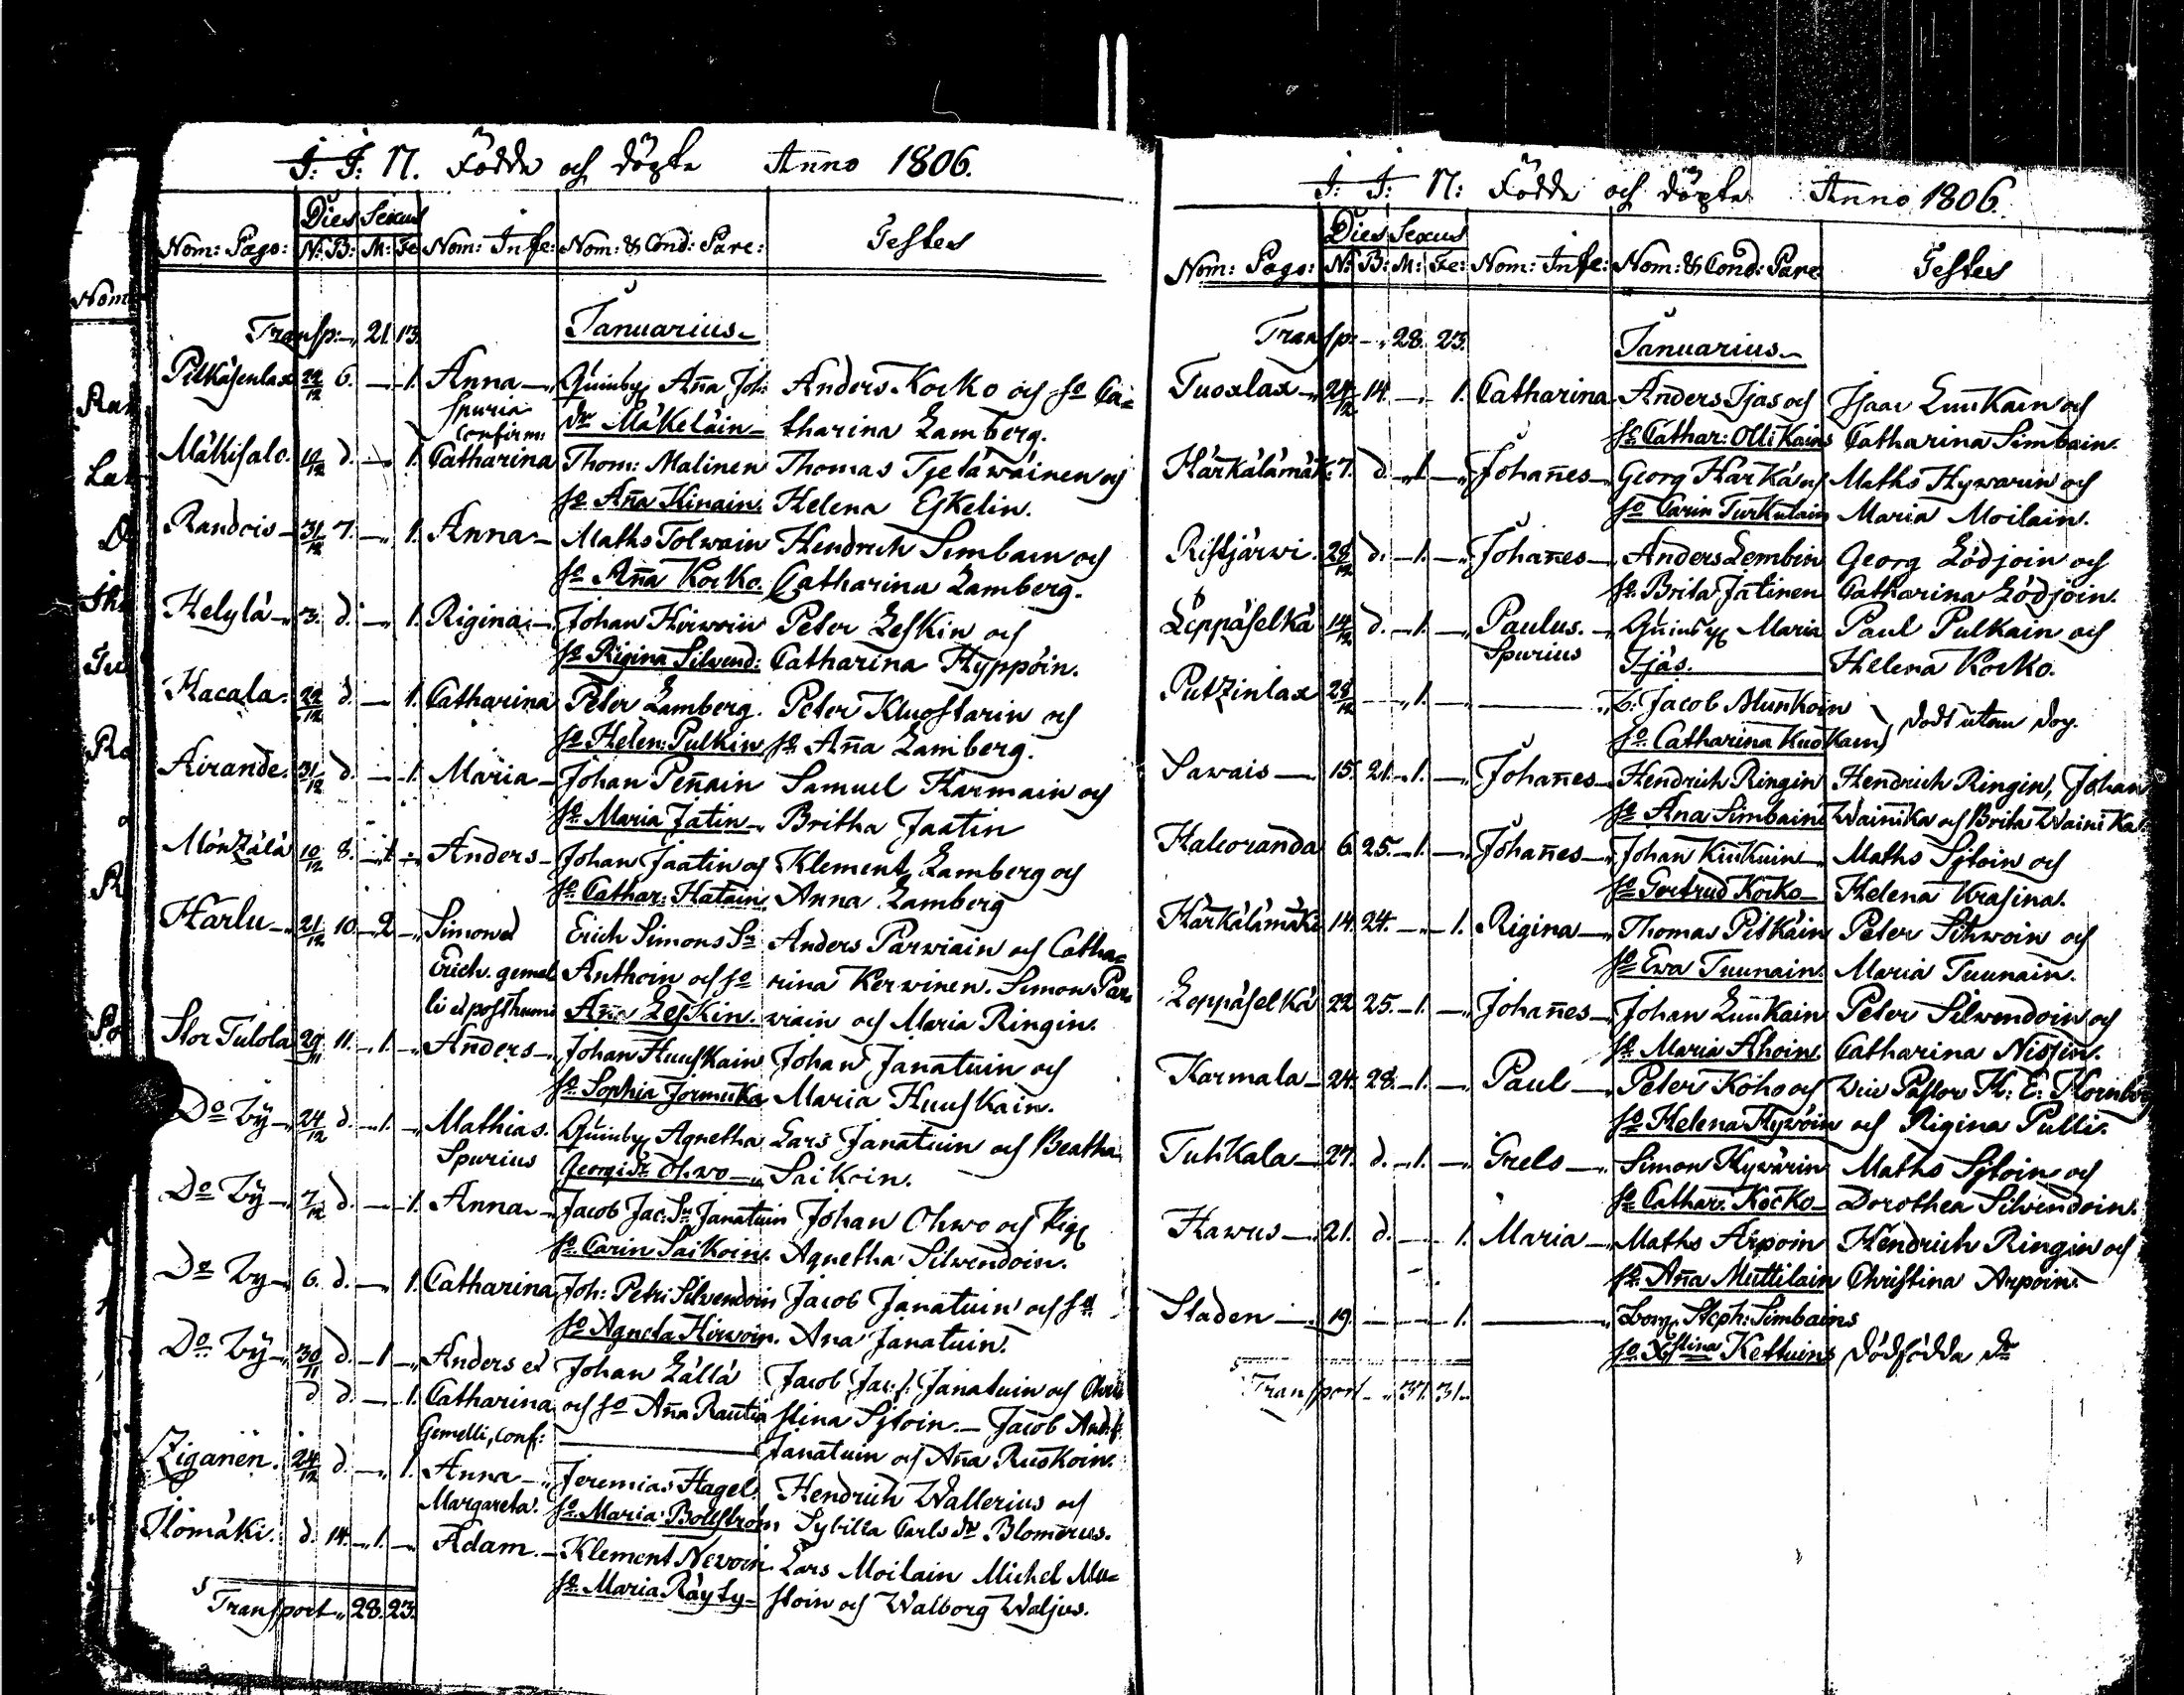 J: J: N. Födde och döpte Anno 1806.
Dies Sexus
Nom: Pago: N: B: M: Fe Nom: Infe: Nom: & Cond: Pare: Testes
Transp: 21. 13. Januarius
Pitkäsenlax 22/12 6. 1. Anna Qvinby Aña Joh: Anders Kocko och ho Ca=
Spuria confirm: dr Mäkeläin tharina Lamberg.
Mäkisalo. 19/12 d. 1. Catharina Thom: Malinen Thomas Tjeläwäinen och
ho Aña Kinain. Helena Eskelin.
Randois 31/12 7. 1. Anna Maths Tolwain Hendrich Simbain och
ho Aña Kocko. Catharina Lamberg.
Helylä 3. d. 1. Rigina Johan Hirwoin Peter Leskin och
ho Rigina Silvend: Catharina Hyppöin.
Kacala. 22/12 d. 1. Catharina Peter Lamberg. Peter Kluostarin och
ho Helen: Pulkin ho Aña Lamberg.
Airande. 31/12 d. 1. Maria Johan Peñain Samuel Karmain och
ho Maria Jatin Britha Jaatin
Möntzälä 10/12 8. 1. Anders Johan Jaatin och Klement Lamberg och
ho Cathar: Hatain Anna Lamberg
Harlu 21/12 10. 2 Simon et Erich Simons Sn Anders Parwiain och Catha=
Erich. gemel Anthoin och ho rina Kerwinen. Simon Par=
li et posthumi Aña Leskin. wiain och Maria Ringin.
Stor Tulola 29/11 11. 1. Anders Johan Huuskain Johan Janatuin och
ho Sophia Jormuka Maria Huuskain.
Do By 24/12 d. 1. Mathias. Qvinby Agnetha Lars Janatuin och Beatha
Spurius Georgi Dr Ohwo Saikoin.
Do By 7/12 d. 1. Anna Jacob Jac: Sn Janatuin Johan Ohwo och Pig
ho Carin Saikoin. Agnetha Silwendoin.
Do By 6. d. 1. Catharina Joh: Petri Silvendoin Jacob Janatuin och ho
ho Agneta Hirwoin. Ana Janatuin.
Do By 30/11 d. 1 Anders et Johan Lällä Jacob Jac: s: Janatuin och Chri
d d. 1. Catharina och ho Aña Rautia stina Sjtoin. Jacob And: s.
Gemelli, conf: Janatuin och Aña Ruskoin.
Ziganen. 24/12 d. 1. Anna Jeremias Hagel. Hendrich Wallerius och
Margareta. ho Maria Bollström Sybilla Carls dr Blomérus.
Ilomäki. d. 14. 1. Adam. Klement Nevoin Lars Moilain Michel Mu=
ho Maria Räyty stoin och Walborg Waljus.
Transport 28. 23.
J: J: N: Födde och döpte Anno 1806.
Dies Sexus
Nom: Pago: N: B: M: Fe: Nom: Infe: Nom: & Cond: Pare: Testes
Transp: 28. 23. Januarius
Tuoxlax 24/12 14. 1. Catharina Anders Ijas och Isaac Luukain och
ho Cathar: Ollikain Catharina Simbain.
Härkälämäk: 7. d. 1. Johañes Georg Harkä och Maths Hywarin och
ho Carin Turkulain Maria Moilain.
Ristjärwi. 28/12 d. 1. Johañes Anders Lembin Georg Lödjoin och
ho Brita Jätinen Catharina Lödjoin.
Leppäselkä 14/12 d. 1. Paulus. Qvinby Maria Paul Pulkain och
Spurius Ijäs. Helena Kocko.
Putzinlax 28/12 1. B: Jacob Munkoin
ho Catharina Kuokain Dödt utan dop.
Sawais 15. 21. 1. Johañes Hendrich Ringin Hendrich Ringin, Johan
ho Ana Simbain Wainika och Brita Wainika
Haleoranda 6. 25. 1. Johañes Johan Kiukuin Maths Sjtoin och
ho Gertrud Kocko Helena Krasina.
Härkälämäki 14. 24. 1. Rigina Thomas Pitkäin Peter Sihwoin och
ho Ewa Tuunain. Maria Tuunain.
Leppäselkä 22 25. 1. Johañes Johan Luukain Peter Silwendoin och
ho Maria Ahoin. Catharina Nissin.
Karmala 24. 28. 1. Paul Peter Koho och Vice Pastor H: E: Hornborg
ho Helena Hywöin och Rigina Pulli.
Tuhkala 27. d. 1. Grels Simon Hywärin Maths Sjtoin och
ho Cathar: Kocko Dorothea Silvendoin.
Hawus 21. d. 1. Maria Maths Arpoin Hendrich Ringin och
ho Aña Muttilain Christina Arpoin.
Staden 19. 1. Borg. Steph: Simbains
ho Xstina Kettuins Dödfödda dr
Transport 37. 31.